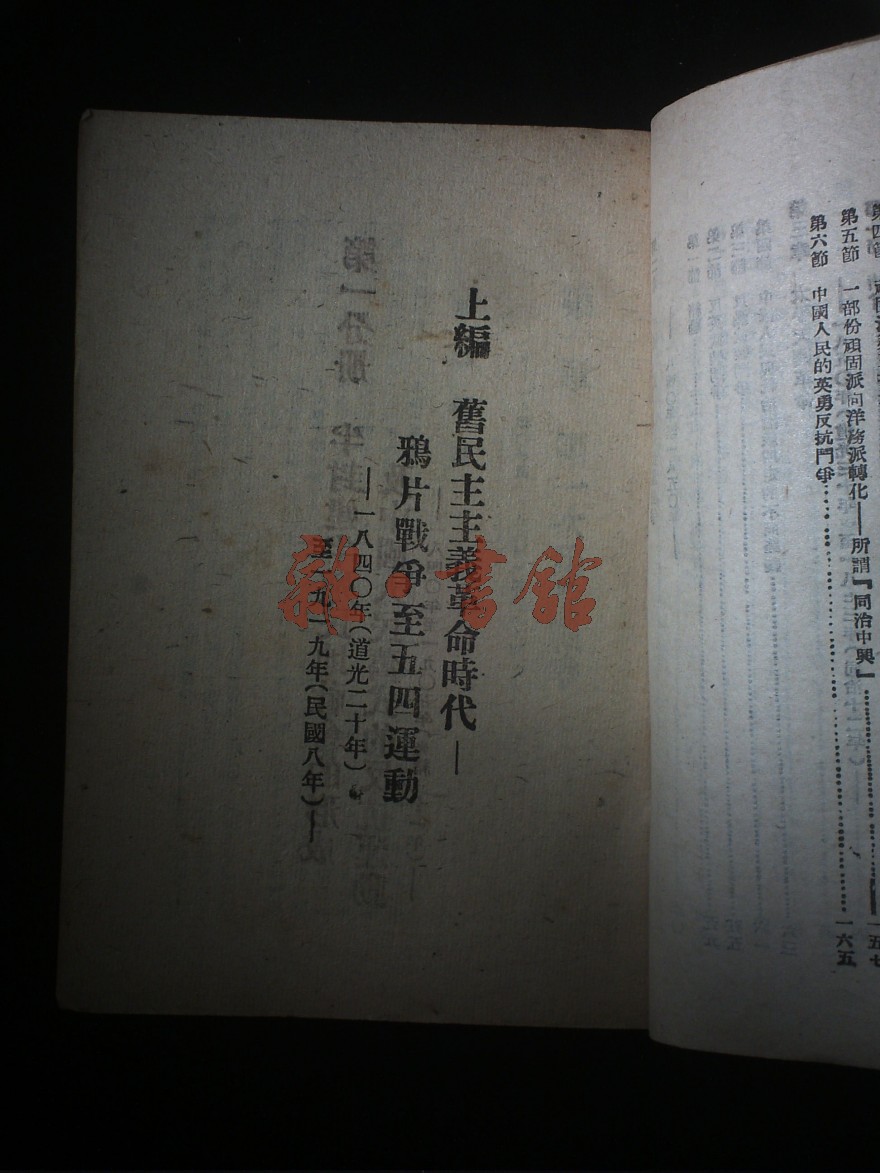 第五節　一部份頑固派向洋務派轉化——所謂『同治中興』………一五七
第六節　中國人民的英勇反抗鬥爭………一六五
上編　舊民主主義革命時代——
鴉片戰爭至五四運動
——一八四〇年（道光二十年）
至一九一九年（民國八年）——
雜·書館